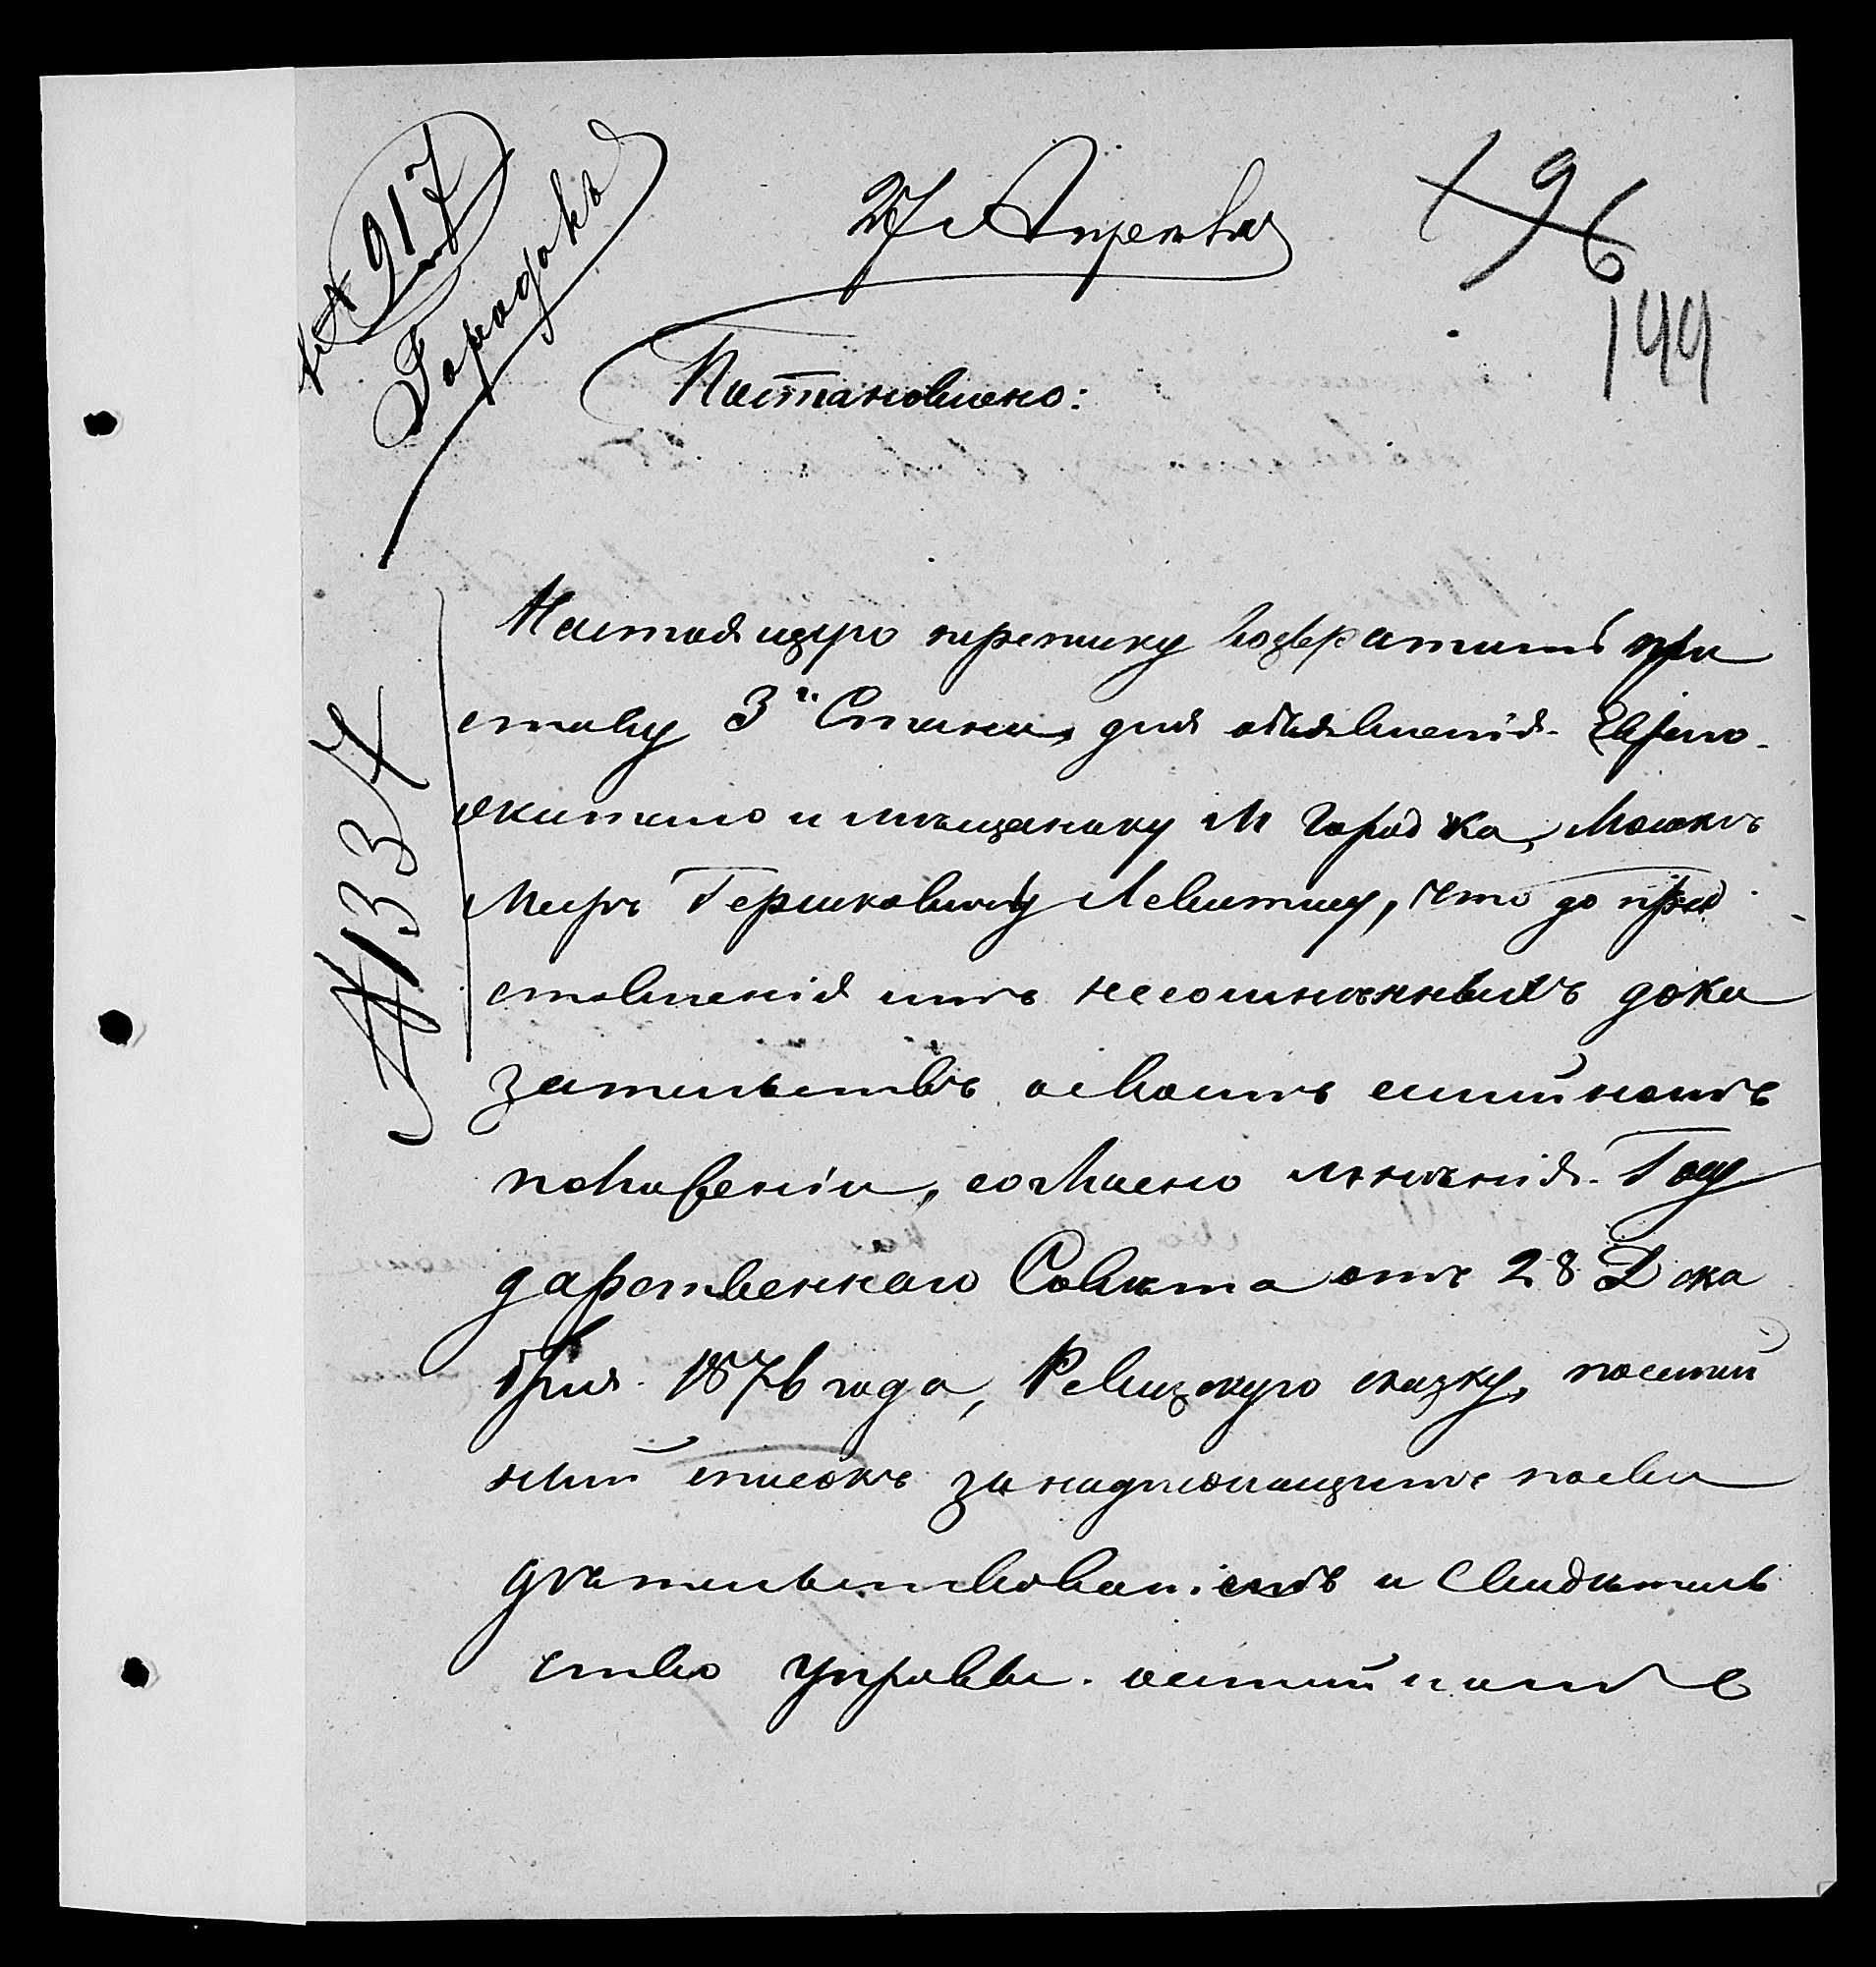 № 917
Городокъ
27 Апрѣля
196
199
Постановлено:
№1334
Настоящую переписку возвратить при
ставу 3го Стана, для объявленія Еврею
жителю и мѣщанину М Городка, Мошкѣ
Меирѣ Гершковичу Левитину, что до пред
ставленія имъ несомнѣнныхъ дока
зательствъ о своемъ семейномъ
положеніи, согласно мнѣнія Госу
дарственнаго Совѣта отъ 28 Дека
бря 1876 года, Ревизскую сказку, посемей
ный списокъ за надлежащимъ посви
дѣтельствованіемъ и Свидѣтель
ство Управы о семейномъ